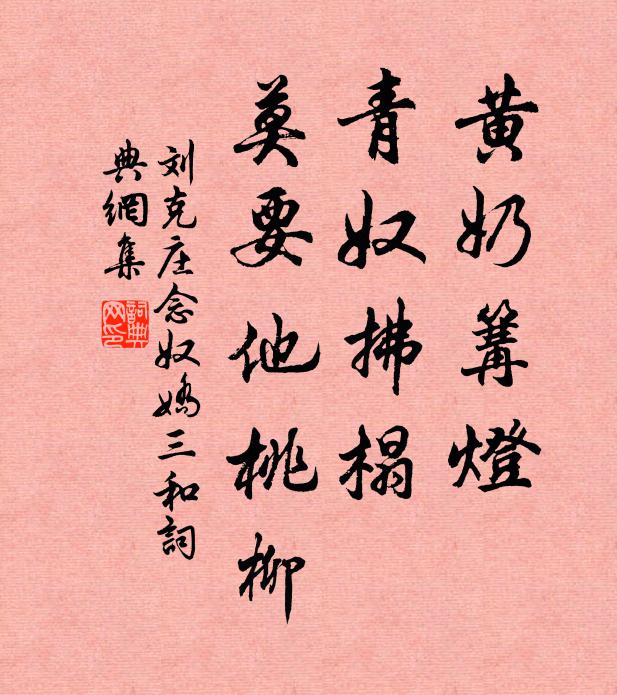 黄奶篝燈
青奴拂榻
莫要他桃柳
刘克庄念奴嬌三和詞
典網集
詞典网印